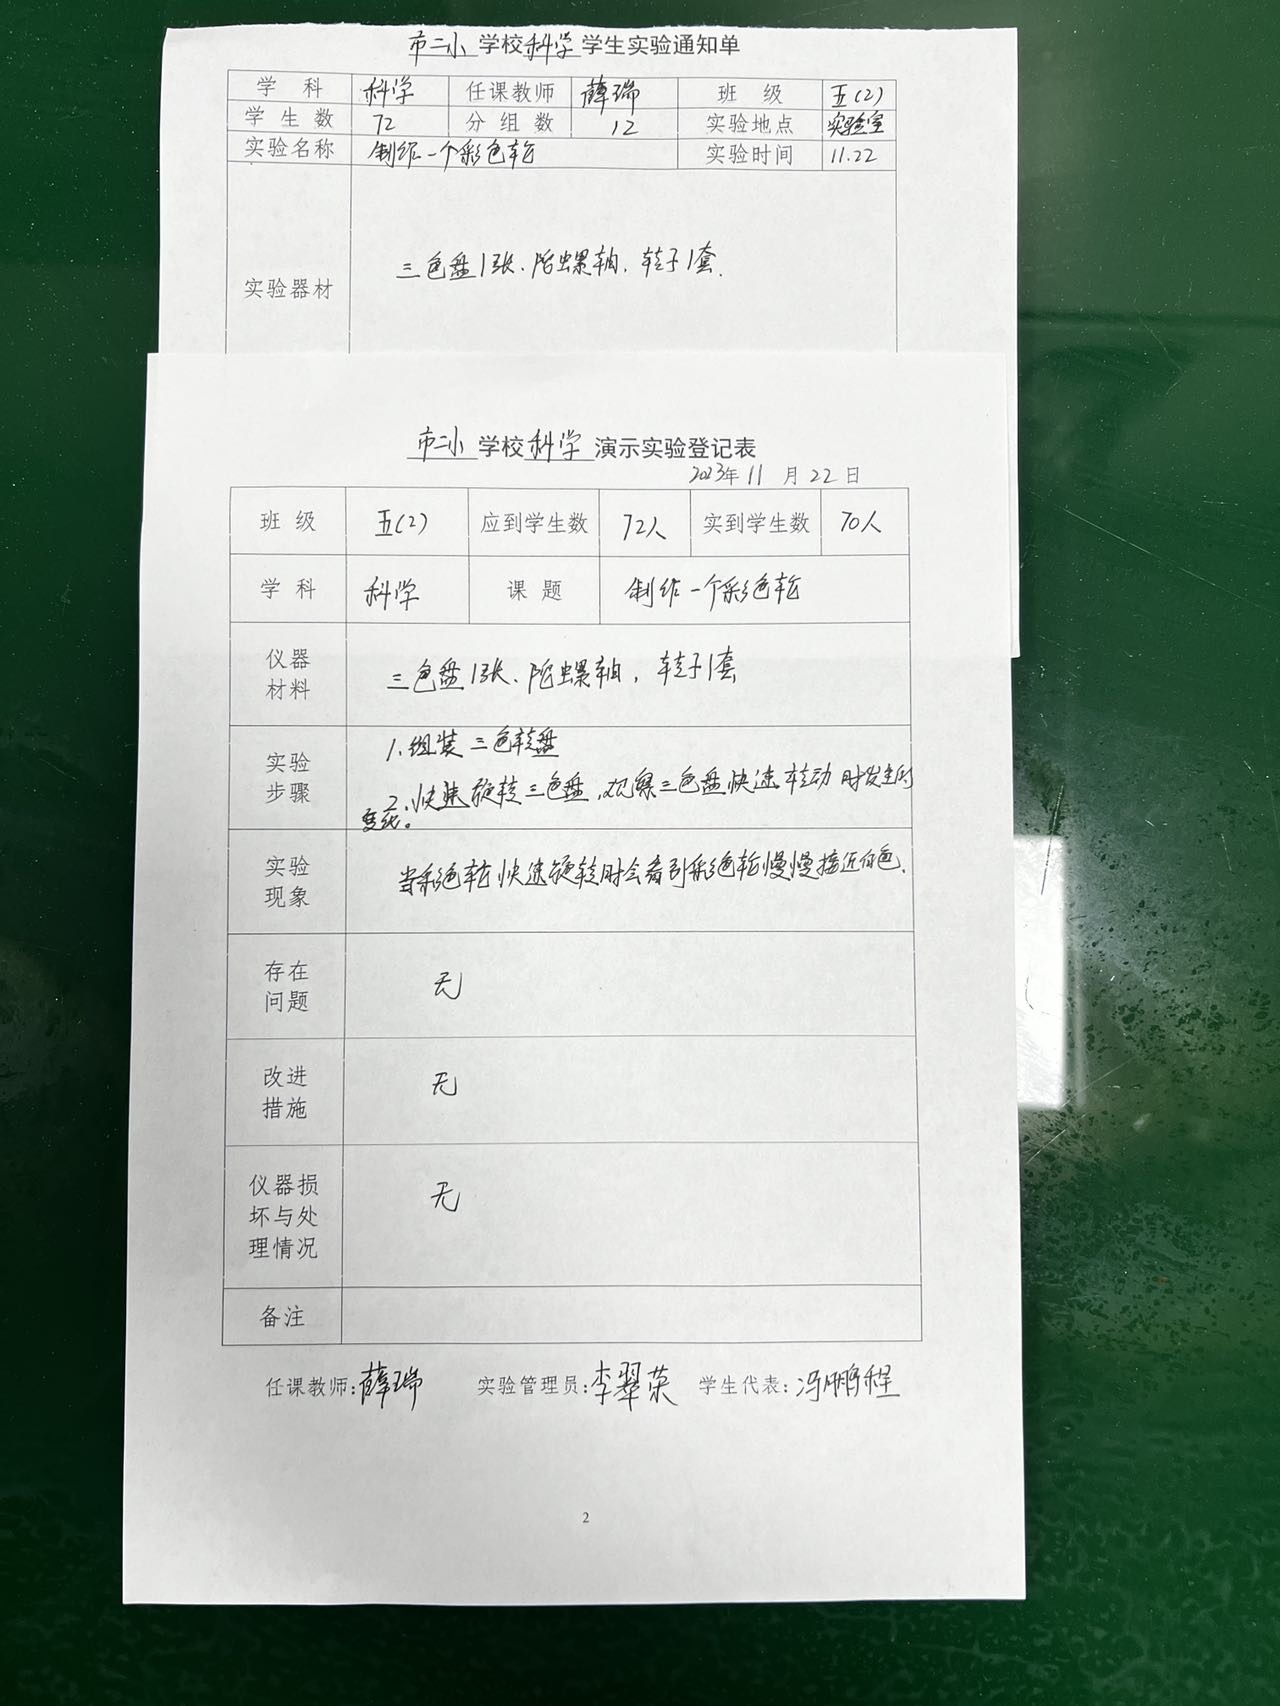 市二小 学校 科学 学生实验通知单
学 科 科学 任课教师 薛瑞 班 级 五(2)
学 生 数 72 分 组 数 12 实验地点 实验室
实验名称 制作一个彩色轮 实验时间 11.22
实验器材 三色盘1张、陀螺轴、转子1套.
市二小 学校 科学 演示实验登记表
2023年 11 月 22 日
班 级 五(2) 应到学生数 72人 实到学生数 70人
学 科 科学 课 题 制作一个彩色轮
仪器
材料
三色盘1张、陀螺轴, 转子1套
实验
步骤
1.组装三色转盘
2.快速旋转三色盘,观察三色盘快速转动时发生的
变化。
实验
现象
当彩色轮快速旋转时会看到彩色轮慢慢接近白色.
存在
问题
无
改进
措施
无
仪器损
坏与处
理情况
无
备注
任课教师:薛瑞 实验管理员:李翠荣 学生代表:冯鹏程
2